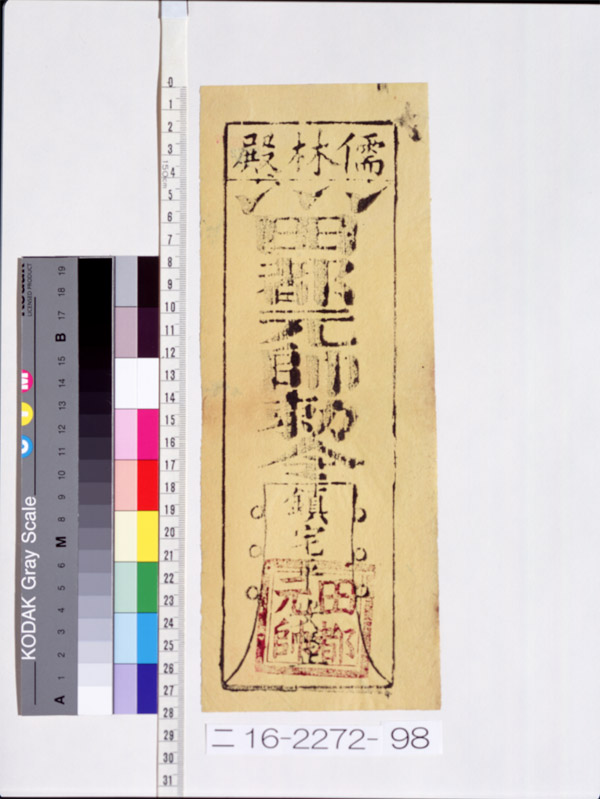 儒林殿
田都元帥敕令鎮宅平安
田都
元帥
二16-2272-98
KODAK Gray Scale
LICENSED PRODUCT
C Y M
A 1 2 3 4 5 6 M 8 9 10 11 12 13 14 15 B 17 18 19
0
1
2
3
4
5
6
7
8
9
10
11
12
13
14
15
16
17
18
19
20
21
22
23
24
25
26
27
28
29
30
31
150cm